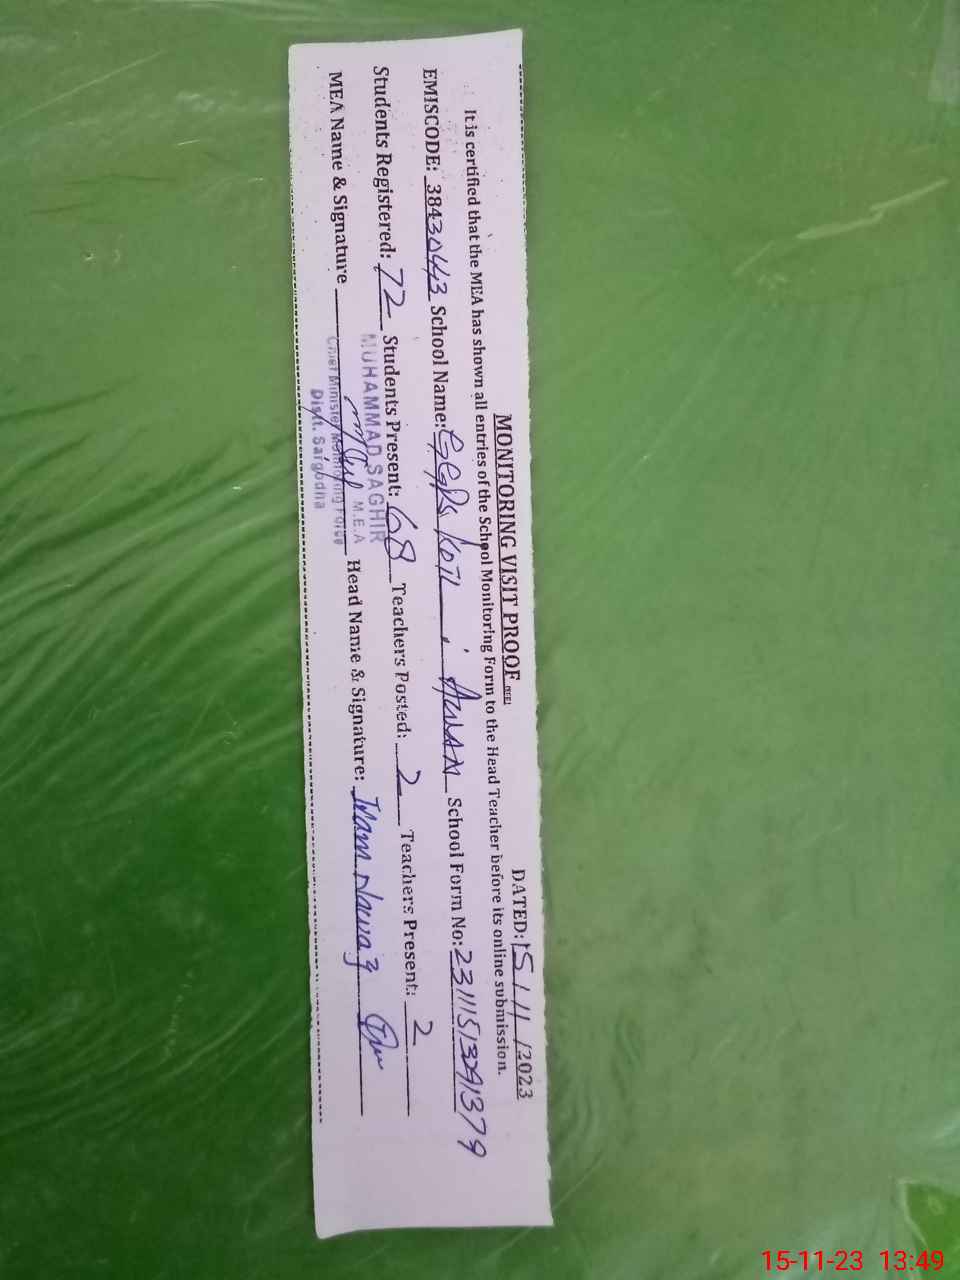 MONITORING VISIT PROOF
DATED: 15/11/2023
It is certified that the MEA has shown all entries of the School Monitoring Form to the Head Teacher before its online submission.
EMISCODE: 38430443 School Name: GGPS KOTL AWAN School Form No: 23111513291379
Students Registered: 72 Students Present: 68 Teachers Posted: 2 Teachers Present: 2
MUHAMMAD SAGHIR
M.E.A
MEA Name & Signature Head Name & Signature: Iram Nawaz
Chief Minister Monitoring Force
Distt. Sargodha
15-11-23 13:49